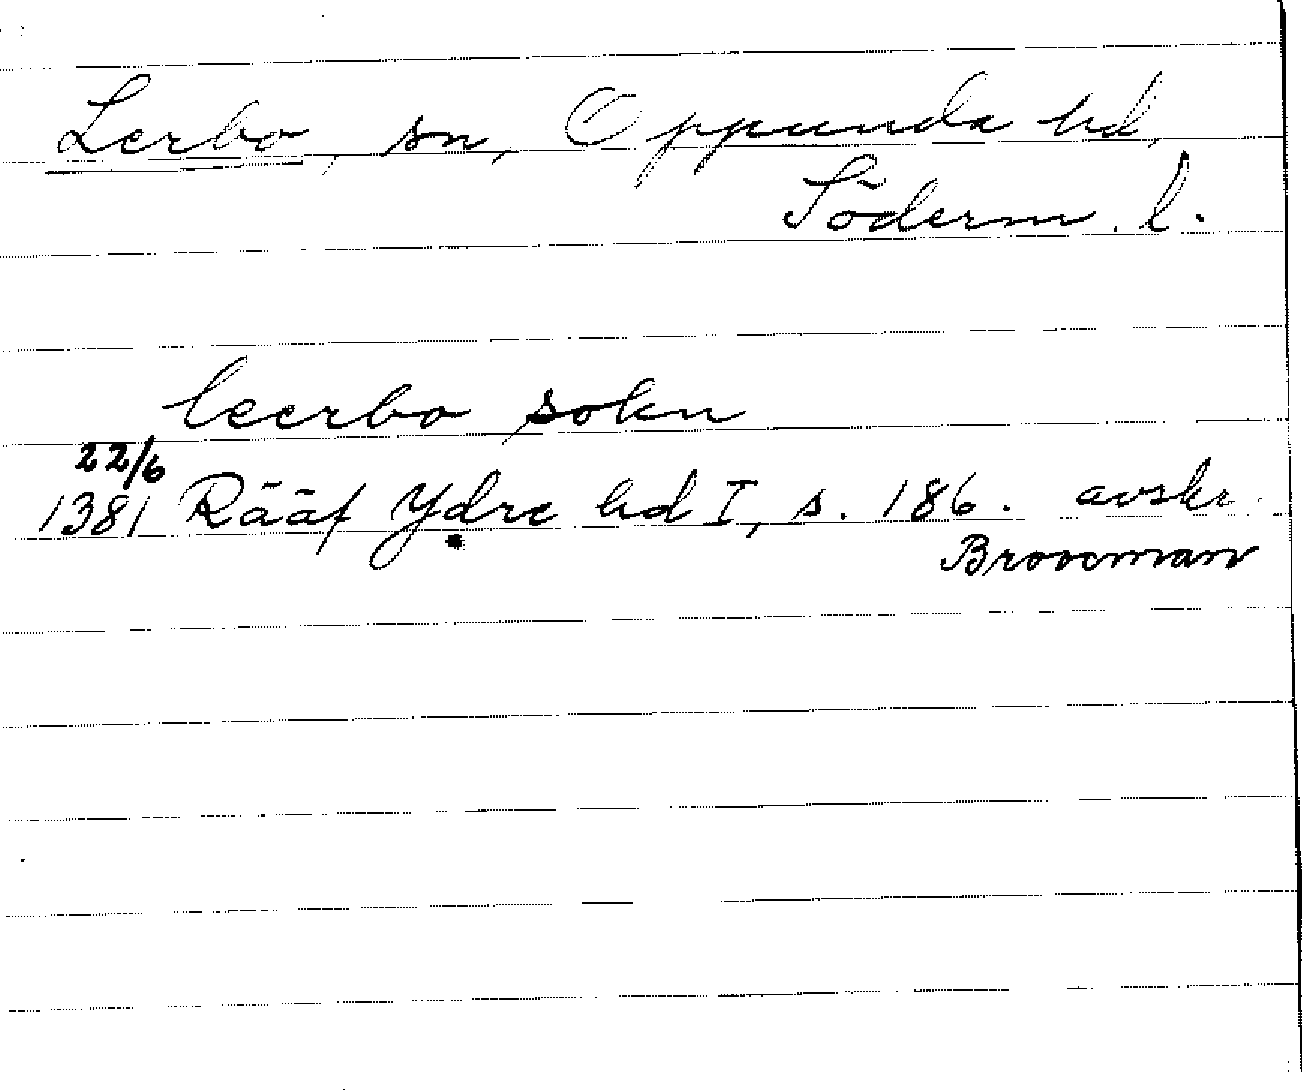 Lerbo, sn, Oppunda hd,
Söderm. l.
leerbo sokn
22/6
1381 Rääf Ydre hd I, s. 186. avskr.
Broocman